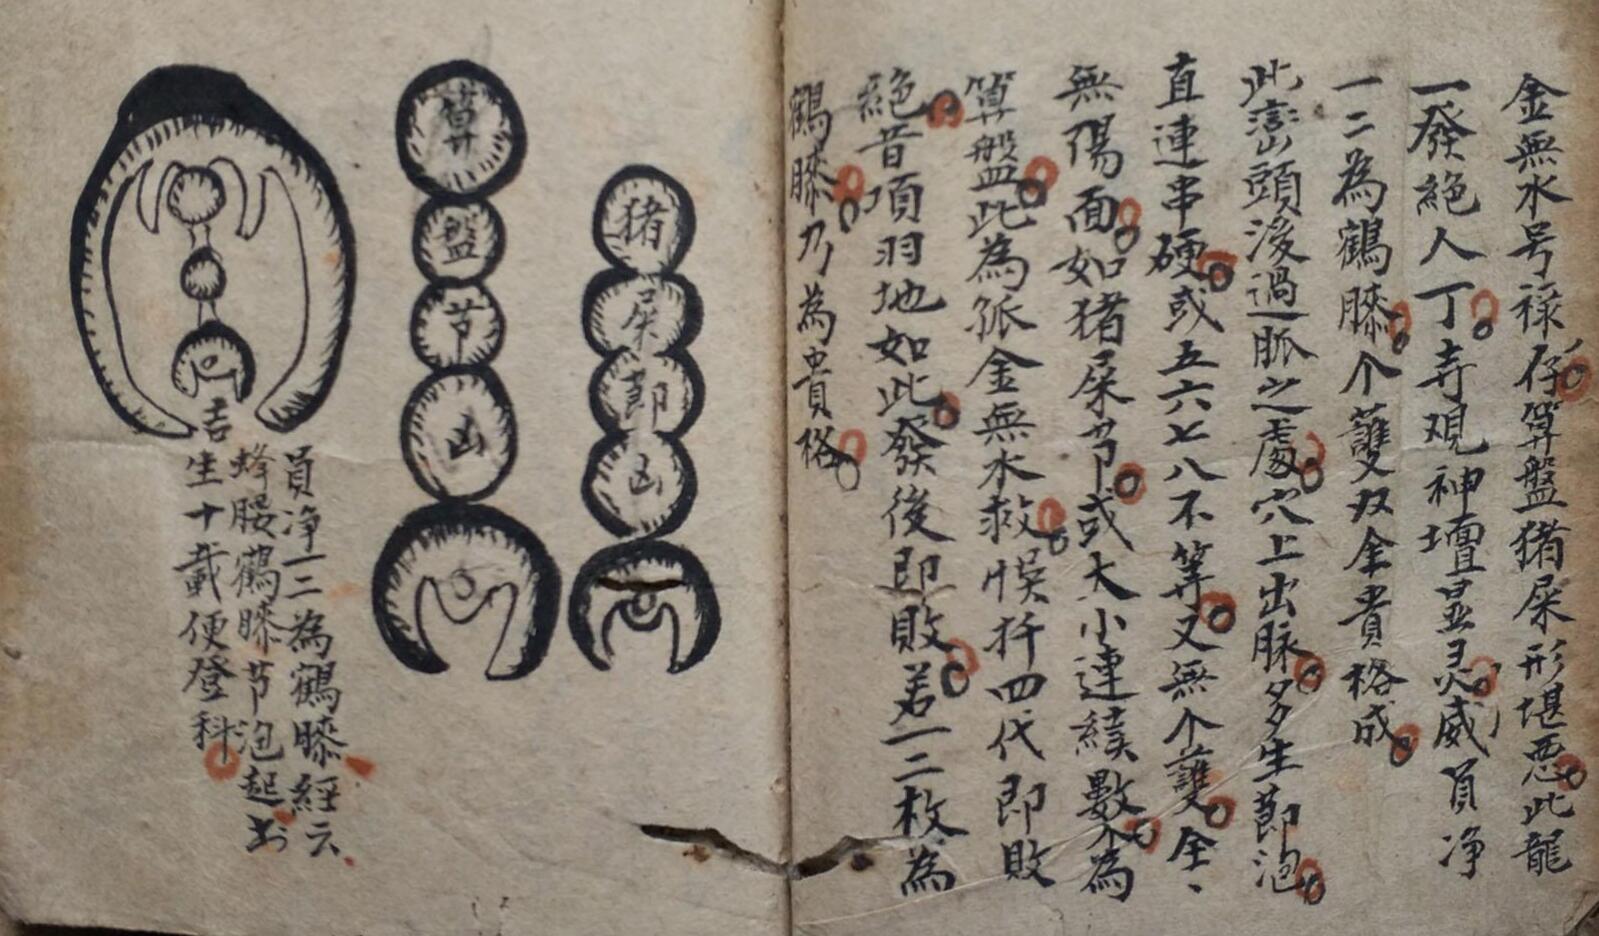 金無水号禄存算盤猪屎形堪悪此龍
一發絕人丁寺观神壇显灵威員净
一二為鶴膝个護双全貴格成
此澎頭後過脈之處穴上出脉多生節泡
直連串硬或五六七八不等又無个護全、
無陽面如猪屎节或大小連續數个為
算盤此為孤金無水救悞扦四代即敗
絕昔項羽地如此發後即敗若一二枚為
鶴膝乃為貴格
猪屎節凶
算盤节凶
吉
員净一二為鶴膝經云
蜂腰鶴膝节泡起
生十載便登科